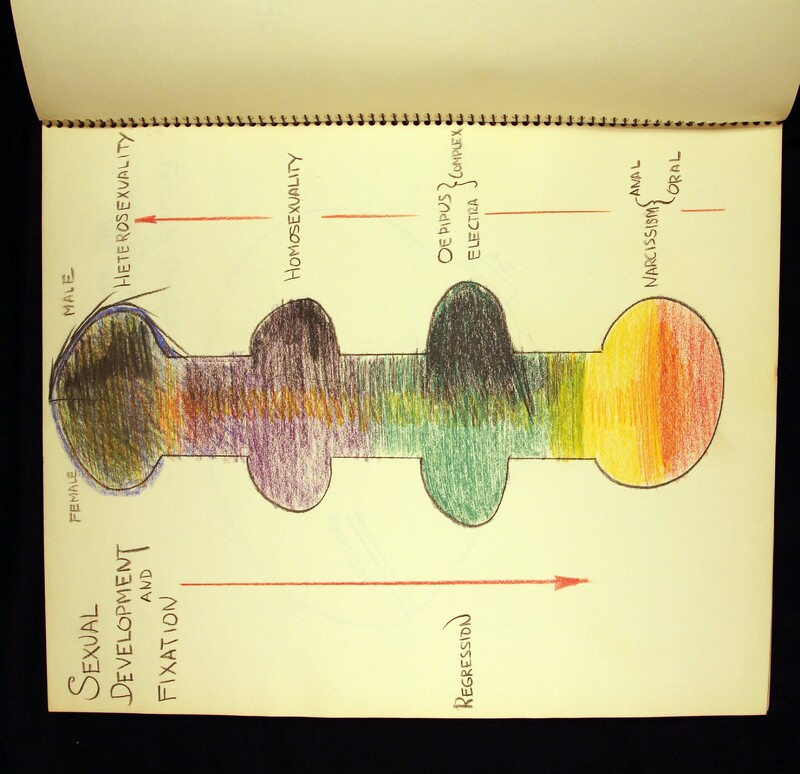 SEXUAL
DEVELOPMENT
AND
FIXATION
FEMALE
MALE
HETEROSEXUALITY
HOMOSEXUALITY
OEDIPUS } COMPLEX
ELECTRA
REGRESSION
NARCISSISM { ANAL
ORAL